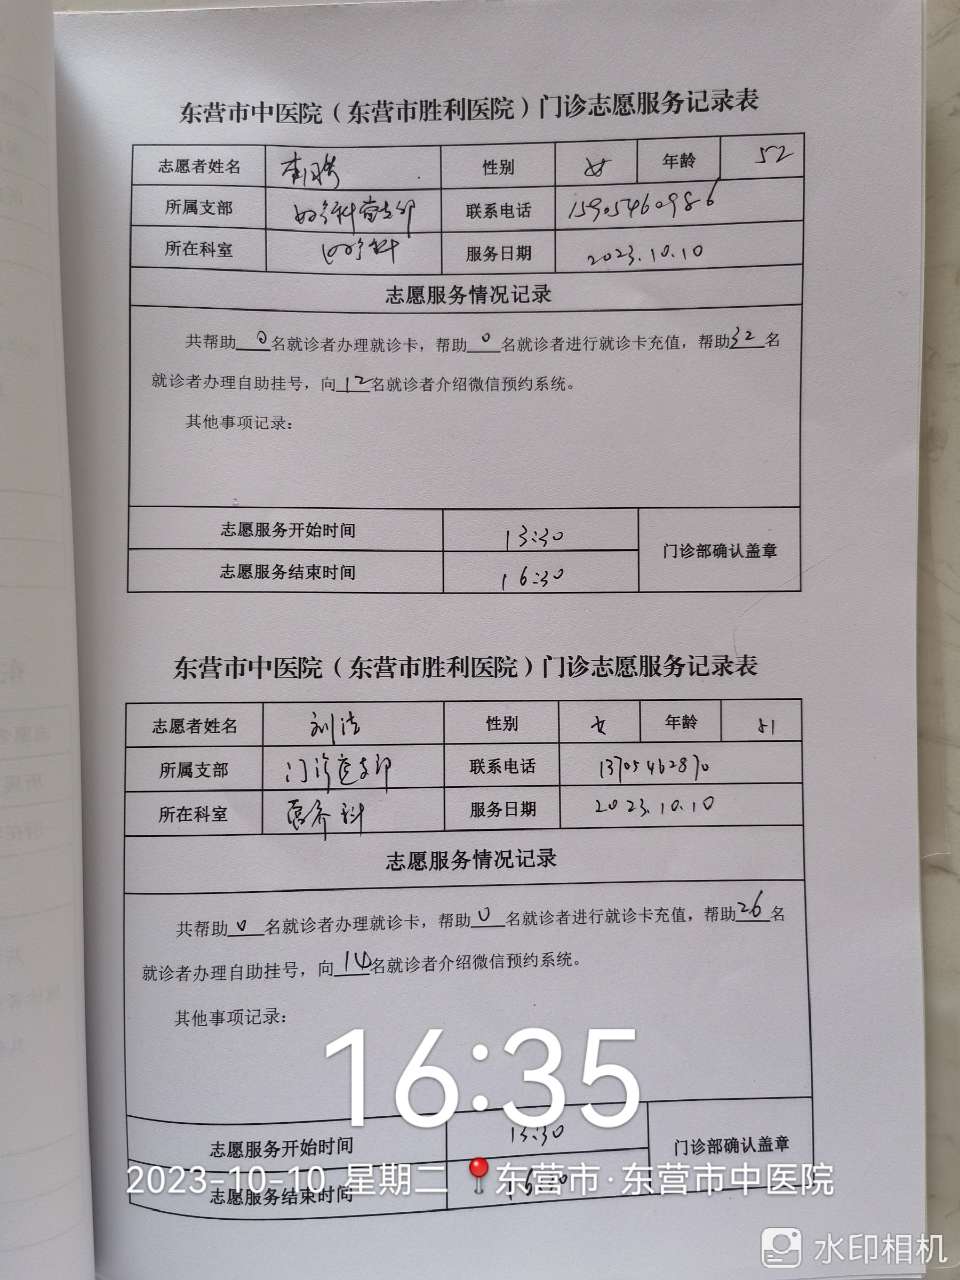 东营市中医院（东营市胜利医院）门诊志愿服务记录表
志愿者姓名 性别 女 年龄 52
所属支部 联系电话 15905460986
所在科室 服务日期 2023.10.10
志愿服务情况记录
共帮助 0 名就诊者办理就诊卡，帮助 0 名就诊者进行就诊卡充值，帮助 32 名
就诊者办理自助挂号，向 12 名就诊者介绍微信预约系统。
其他事项记录：
志愿服务开始时间 13:30
门诊部确认盖章
志愿服务结束时间 16:30
东营市中医院（东营市胜利医院）门诊志愿服务记录表
志愿者姓名 刘洁 性别 女 年龄 51
所属支部 门诊党支部 联系电话 13705462870
所在科室 服务日期 2023.10.10
志愿服务情况记录
共帮助 0 名就诊者办理就诊卡，帮助 0 名就诊者进行就诊卡充值，帮助 26 名
就诊者办理自助挂号，向 14 名就诊者介绍微信预约系统。
其他事项记录：
16:35
志愿服务开始时间 13:30
门诊部确认盖章
2023-10-10 星期二 东营市·东营市中医院
志愿服务结束时间
水印相机